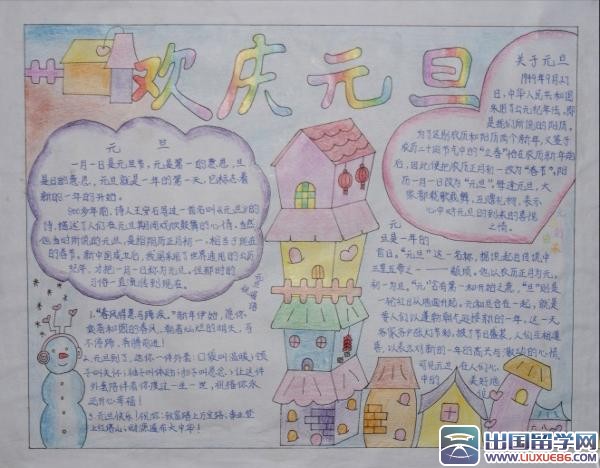 欢庆元旦
元 旦
一月一日是元旦节,元是第一的意思,旦
是日的意思,元旦就是一年的第一天,它标志着
新的一年的开始。
900多年前,诗人王安石写过一首名叫《元旦》的
诗,描述了人们在元旦期间欢欣鼓舞的心情。当然
他当时所说的元旦,是指阴历正月初一,相当于现在
的春节。新中国成立后,我国采用了世界通用的公历
纪年,才把一月一日称为元旦。但那时的
习俗一直流传到现在。
关于元旦
1949年9月27
日,中华人民共和国
采用了公元纪年法,即
是我们所说的阳历。
为了区别农历和阳历两个新年,又鉴于
农历二十四节气中的“立春”恰在农历新年前
后,因此便把农历正月初一改为“春节”,阳
历一月一日改为“元旦”。每逢元旦,大
家都载歌载舞,互赠礼物,表示
心中对元旦的到来的喜悦
之情。
元旦祝福语
1.“春风得意马蹄疾。”新年伊始,愿你
乘着和国的春风,朝着灿烂的明天,马
不停蹄,奔腾前进!
2.元旦到了,送你一件外套:口袋叫温暖;领
子叫关怀;袖子叫体贴;扣子叫思念;让这件
外套陪伴着你度过一生一世,祝福你永
远开心幸福!
3.元旦快乐!
元
旦是一年的
首日。“元旦”这一名称,据说起自传说中
三皇五帝之一——颛顼。他以农历正月为元,
初一为旦。“元”它有第一和开始之意,“旦”则是
一轮红日从地面升起。元和旦合在一起,就是
要人们以蓬勃朝气迎接新的一年。这一天
各家各户张灯节彩,披了节日盛装,人们互相道喜
,以表示对新的一年的高兴与激动的心情
可见元旦在人们心
中的
美好地
位
出国留学网
WWW.LIUXUE86.COM